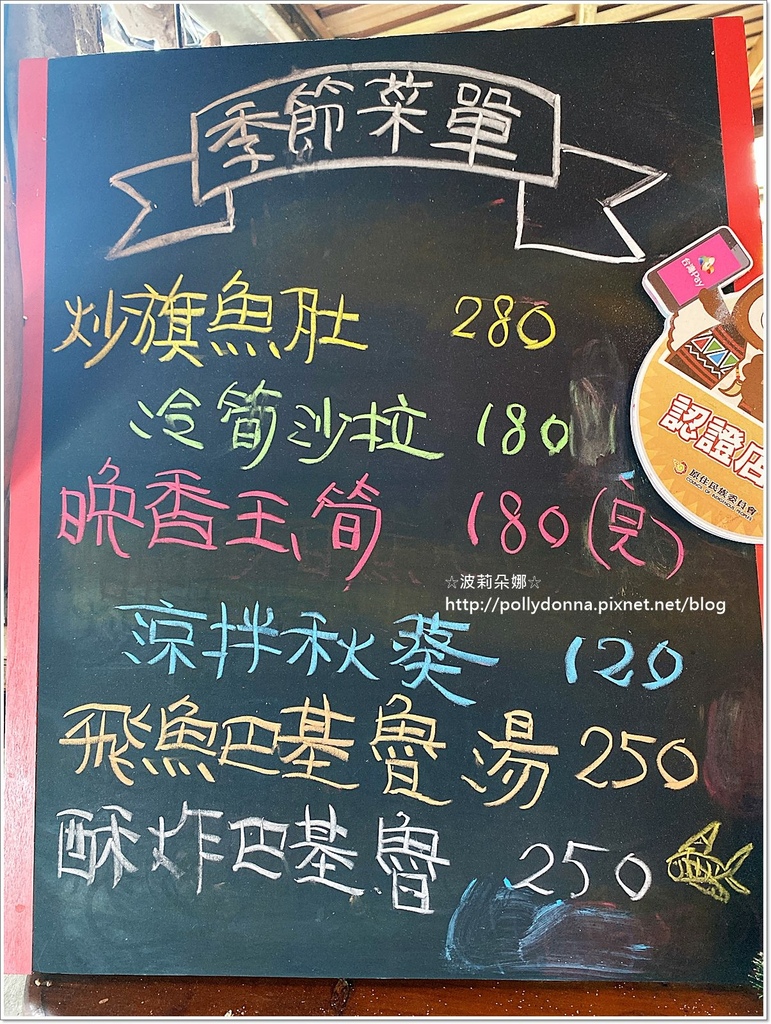 季節菜單
台灣Pay
炒旗魚肚 280
冷筍沙拉 180
認證店
原住民族委員會
COUNCIL OF INDIGENOUS PEOPLES
晚香玉筍 180(見)
☆波莉朵娜☆
http://pollydonna.pixnet.net/blog
涼拌秋葵 120
飛魚巴基魯湯 250
酥炸巴基魯 250